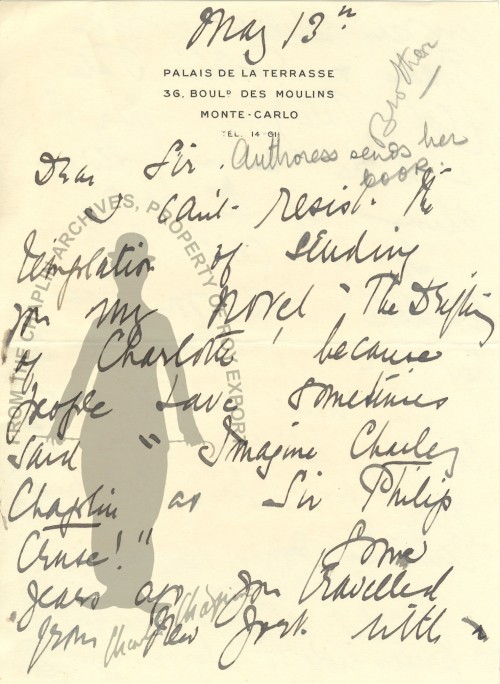 May 13th
PALAIS DE LA TERRASSE
36, BOULD DES MOULINS
MONTE-CARLO
TÉL. 14-61
Brother
Authoress sends her
book.
Dear Sir.
I can't resist the
temptation of sending
you my novel "The Drifting
of Charlotte", because
people have sometimes
said "Imagine Charley
Chaplin as Sir Philip
Cruse!" Some
years ago you travelled
from New York with
FROM THE CHAPLIN ARCHIVES, PROPERTY OF ROY EXPORT